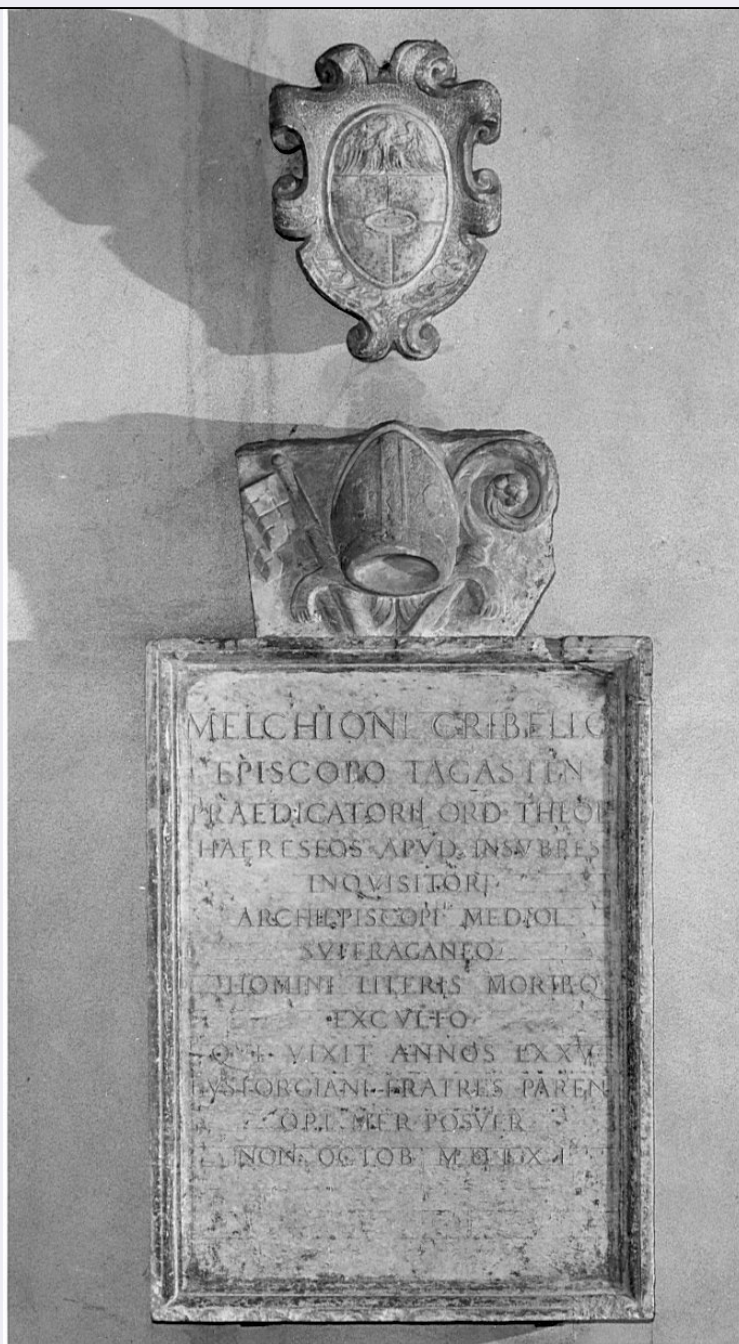 MELCHIONI CRIBELLO
EPISCOPO TAGASTEN
PRAEDICATORII ORD THEOL
HAERESEOS APVD INSVBRES
INQVISITORI
ARCHIEPISCOPI MEDIOL
SVFFRAGANEO
HOMINI LITERIS MORIBQ
EXCVLTO
QVI VIXIT ANNOS LXXV
EVSTORGIANI FRATRES PAREN
OPT MER POSVER
NON OCTOB